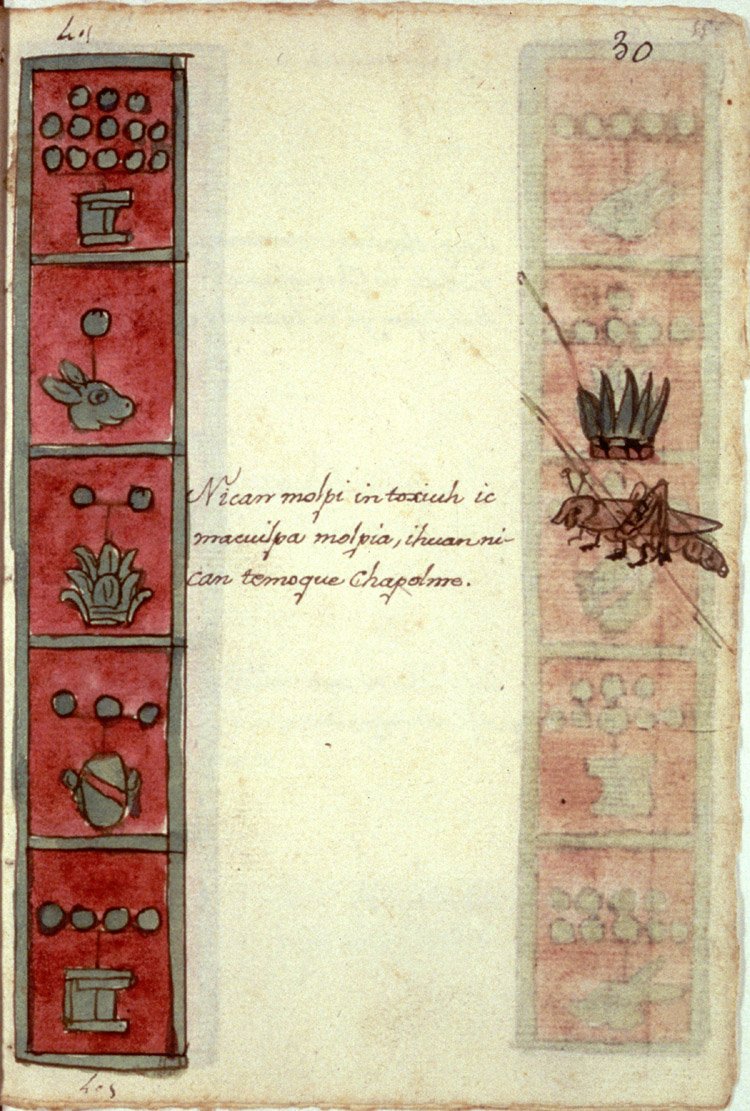 30
Nican molpi in toxiuh ic
macuilpa molpia, ihuan ni-
can temoque Chapolme.